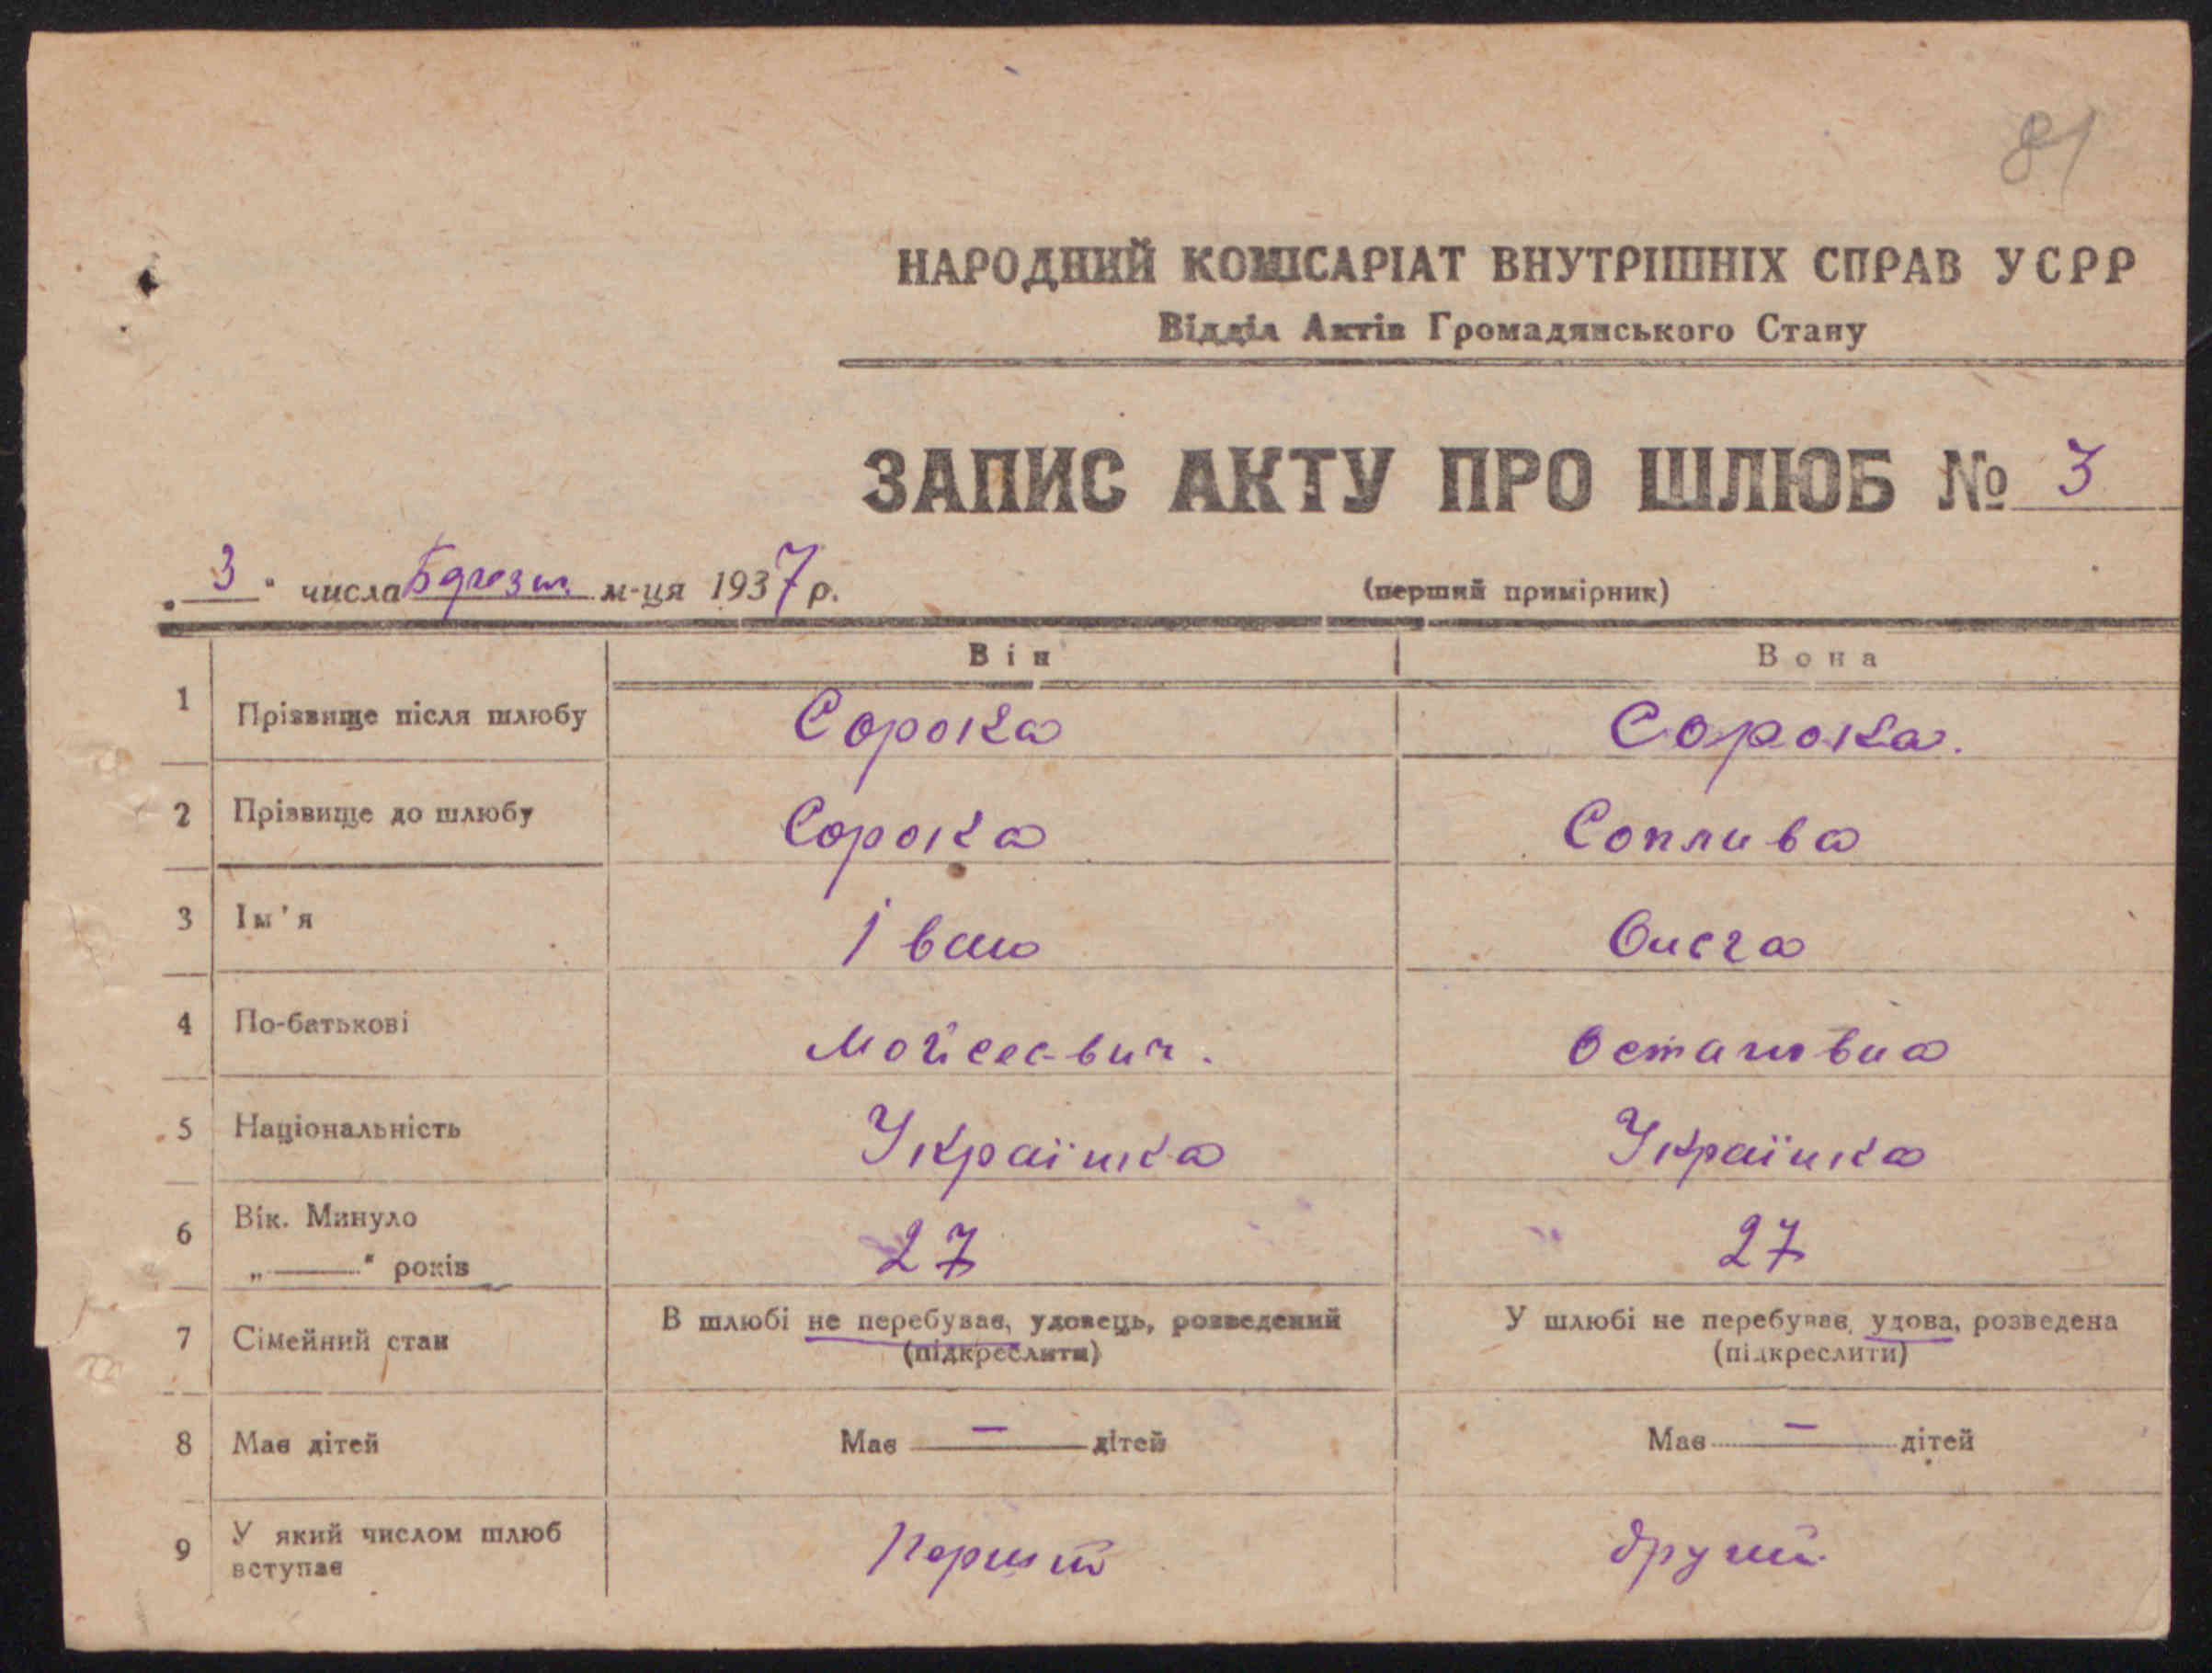 81
НАРОДНИЙ КОМІСАРІАТ ВНУТРІШНІХ СПРАВ УСРР
Відділ Актів Громадянського Стану
ЗАПИС АКТУ ПРО ШЛЮБ № 3
„ 3 " числа м-ця 1937 р.
(перший примірник)
Він Вона
1 Прізвище після шлюбу Сорока Сорока.
2 Прізвище до шлюбу Сорока Соплива
3 Ім'я Іван
4 По-батькові Мойсеевич.
5 Національність Українка Українка
6 Вік. Минуло
„ " років 27 27
7 Сімейний стан В шлюбі не перебуває, удовець, розведений У шлюбі не перебуває, удова, розведена
(підкреслити) (підкреслити)
8 Має дітей Має — дітей Має — дітей
9 У який числом шлюб
вступає Перший другий